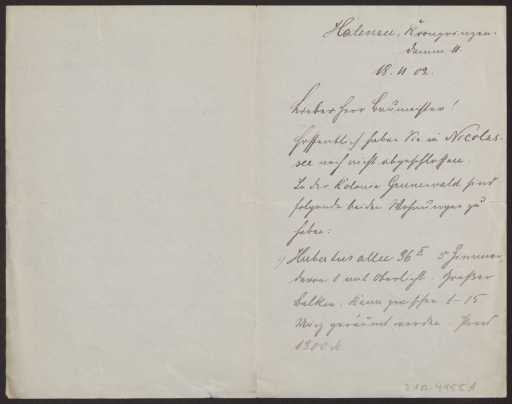 Halensee, Kronprinzen-
damm 11.
18. 11 02.
Lieber Herr Baumeister!
Hoffentlich haben Sie in Nicolas-
see noch nicht abgeschlossen.
In der Kolonie Grunewald sind
folgende beiden Wohnungen zu
haben:
1) Hubertus allee 36 II 5 Zimmer,
davon 1 mit Oberlicht. Großer
Balkon. Kann zwischen 1-15
März geräumt werden. Preis
1300 M.